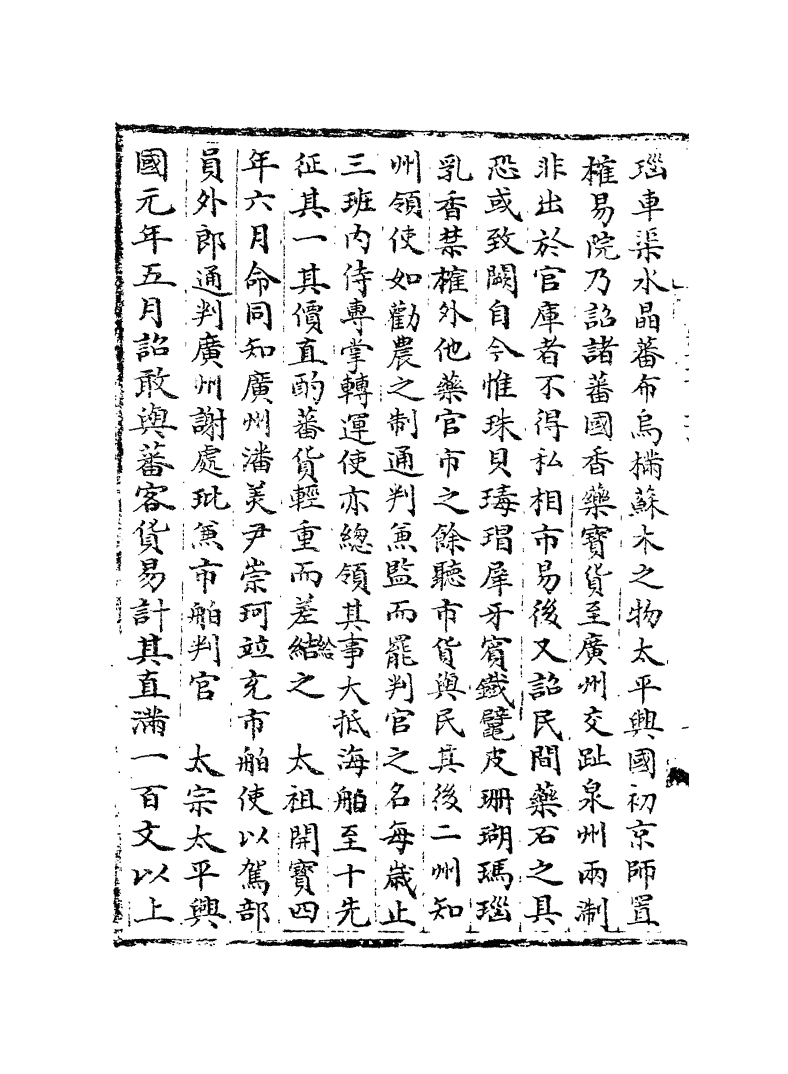 瑙車渠水晶蕃布烏樠蘇木之物太平興國初京師置
榷易院乃詔諸蕃國香藥寶貨至廣州交趾泉州兩淛
非出於官庫者不得私相市易後又詔民間藥石之具
恐或致闕自今惟珠貝瑇瑁犀牙賓鐵鼊皮珊瑚瑪瑙
乳香禁榷外他藥官市之餘聽市貨與民其後二州知
州領使如勸農之制通判兼監而罷判官之名每歲止
三班內侍專掌轉運使亦總領其事大抵海舶至十先
征其一其價直酌蕃貨輕重而差結給之　太祖開寶四
年六月命同知廣州潘美尹崇珂竝充市舶使以駕部
員外郎通判廣州謝處玭兼市舶判官　太宗太平興
國元年五月詔敢與蕃客貨易計其直滿一百文以上